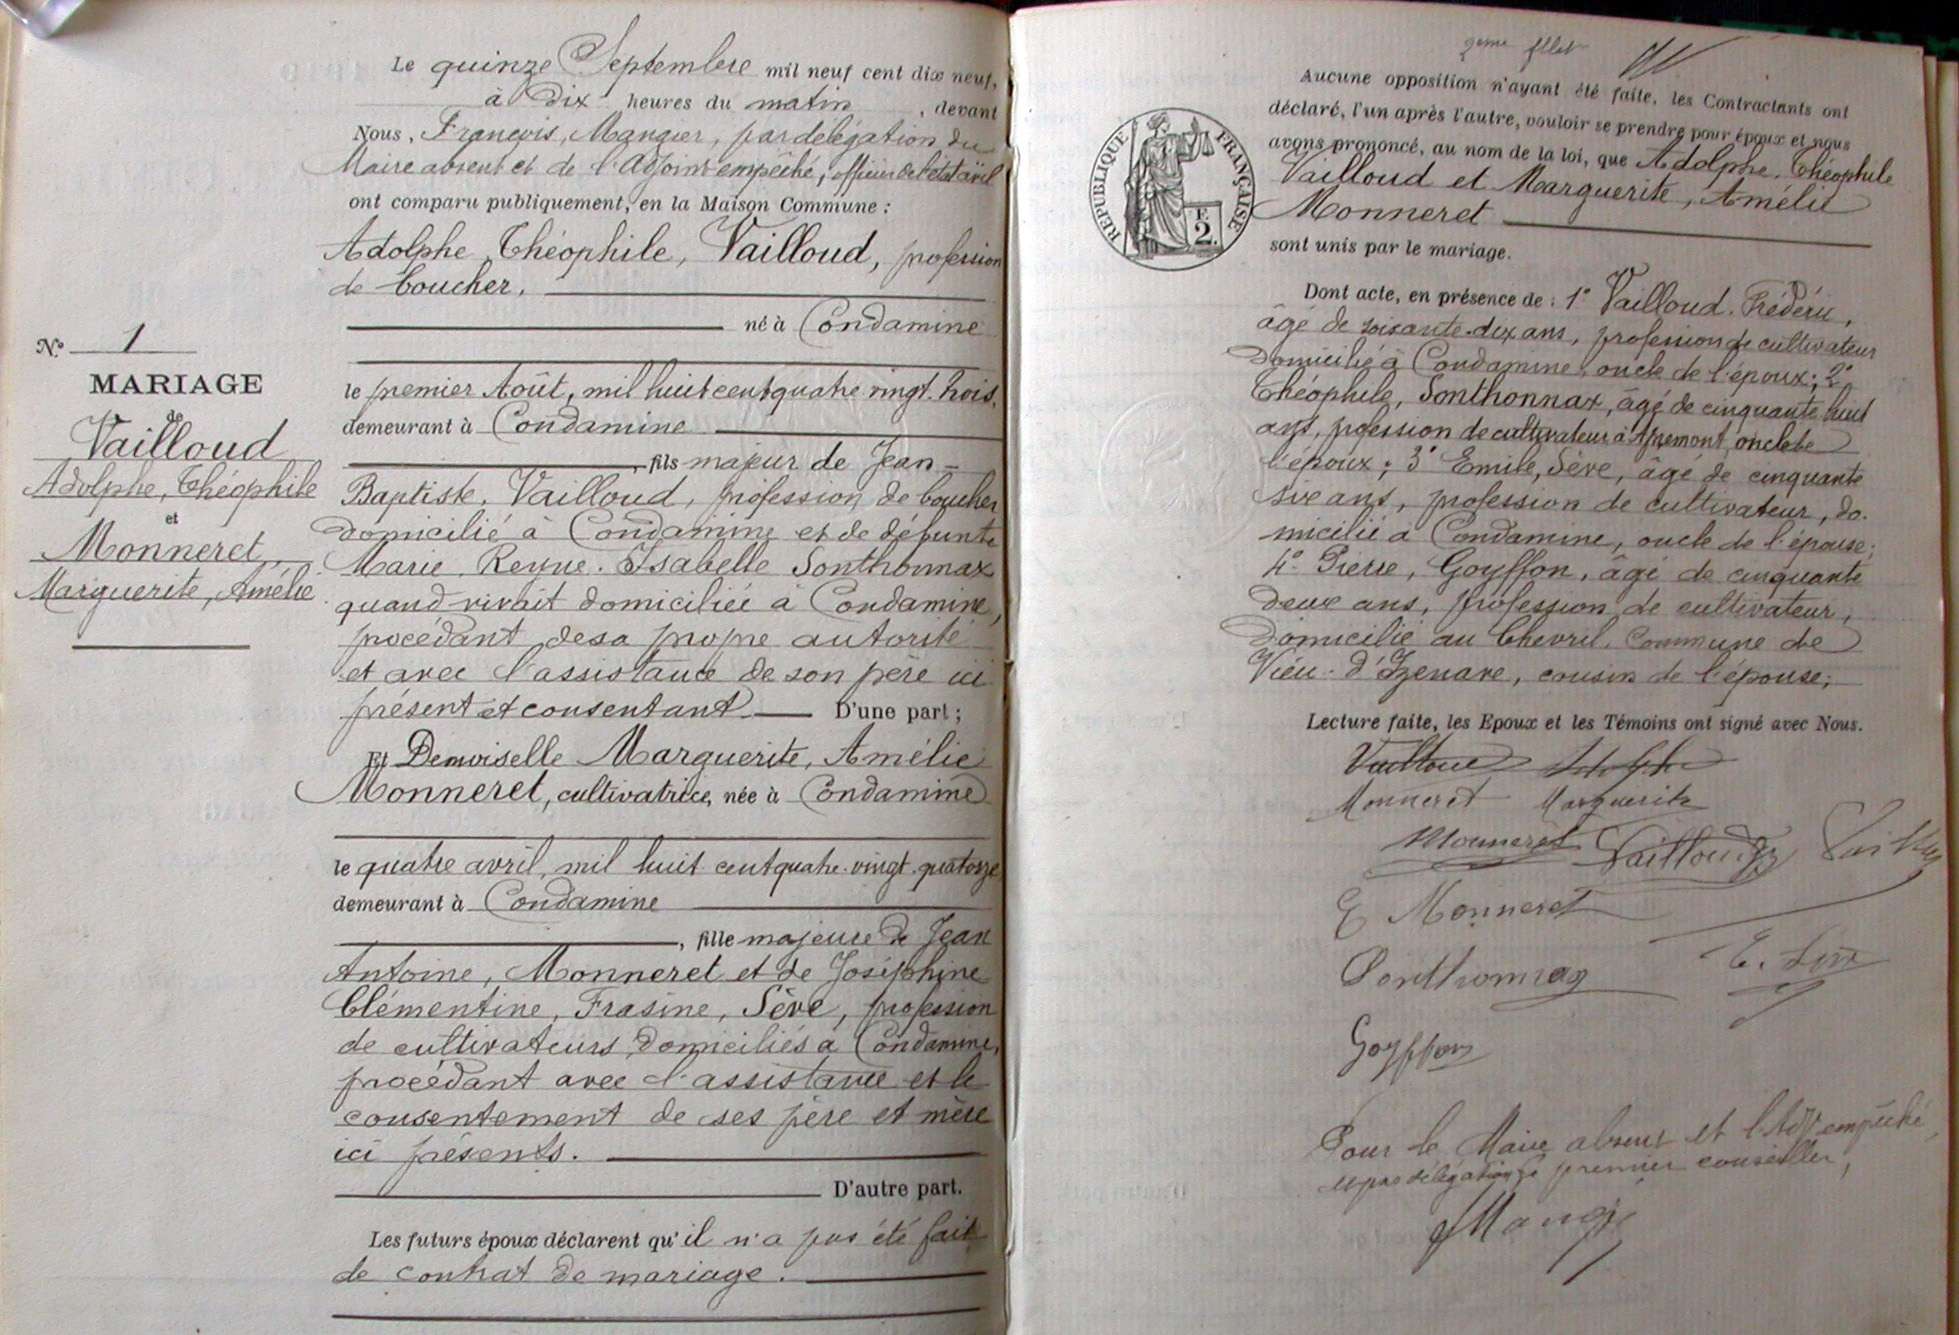 Nº 1
MARIAGE
de
Vailloud
Adolphe, Théophile
et
Monneret,
Marguerite, Amélie
Le quinze Septembre mil neuf cent dix neuf,
à Dix heures du matin, devant
Nous, François, Mangier, par délégation du
Maire absent et de l'Adjoint empêché, officier de l'état civil
ont comparu publiquement, en la Maison Commune :
Adolphe, Théophile, Vailloud, profession
de boucher,
né à Condamine
le premier Août, mil huit cent quatre vingt-trois,
demeurant à Condamine
, fils majeur de Jean-
Baptiste, Vailloud, profession de boucher
domicilié à Condamine et de défunte
Marie, Reyne, Isabelle Sonthonnax
quand vivait domiciliée à Condamine,
procédant de sa propre autorité
et avec l'assistance de son père ici
présent et consentant D'une part ;
Et Demoiselle Marguerite, Amélie
Monneret, cultivatrice, née à Condamine
le quatre avril, mil huit cent quatre-vingt-quatorze
demeurant à Condamine
, fille majeure de Jean
Antoine, Monneret et de Joséphine
Clémentine, Frasine, Sève, profession
de cultivateurs, domiciliés à Condamine,
procédant avec l'assistance et le
consentement de ses père et mère
ici présents.
D'autre part.
Les futurs époux déclarent qu'il n'a pas été fait
de contrat de mariage.
2eme fllet
Aucune opposition n'ayant été faite, les Contractants ont
déclaré, l'un après l'autre, vouloir se prendre pour époux et nous
avons prononcé, au nom de la loi, que Adolphe, Théophile
Vailloud et Marguerite, Amélie
Monneret
sont unis par le mariage.
REPUBLIQUE FRANÇAISE
F.
2.
Dont acte, en présence de : 1° Vailloud Frédéric,
âgé de soixante-dix ans, profession de cultivateur
domicilié à Condamine, oncle de l'époux; 2°
Théophile, Sonthonnax, âgé de cinquante huit
ans, profession de cultivateur à Apremont, oncle de
l'époux; 3° Emile, Sève, âgé de cinquante
six ans, profession de cultivateur, do-
micilié à Condamine, oncle de l'épouse;
4° Pierre, Goyffon, âgé de cinquante
deux ans, profession de cultivateur,
domicilié au Chevril, Commune de
Vieu-d'Izenave, cousin de l'épouse;
Lecture faite, les Epoux et les Témoins ont signé avec Nous.
Vailloud Adolphe
Monneret Marguerite
Monneret Vailloud
E Monneret
Sonthonnax E. Sève
Goyffon
Pour le Maire absent et l'Adjt empêché,
et par délégation le premier conseiller,
Mangie